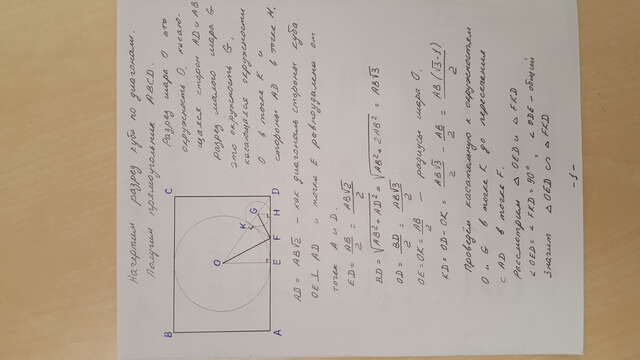 Начертим разрез куба по диагонали.
Получим прямоугольник ABCD.
B
C
O
K
G
A
E
F
H
D
Разрез шара O это
окружность O, касаю-
щаяся сторон AD и AB
Разрез малого шара G
это окружность G,
касающаяся окружности
O в точке K и
стороны AD в точке H.
AD = AB√2 - как диагональ стороны куба
OE ⊥ AD и точка E равноудалена от
точек A и D.
ED = AB/2 = AB√2/2
BD = √(AB² + AD²) = √(AB² + 2AB²) = AB√3
OD = BD/2 = AB√3/2
OE = OK = AB/2 - радиусы шара O.
KD = OD - OK = AB√3/2 - AB/2 = AB(√3-1)/2
Проведём касательную к окружностям
O и G в точке K до пересечения
с AD в точке F.
Рассмотрим △OED и △FKD
∠OED = ∠FKD = 90°, ∠ODE - общий
Значит △OED ∽ △FKD
-1-